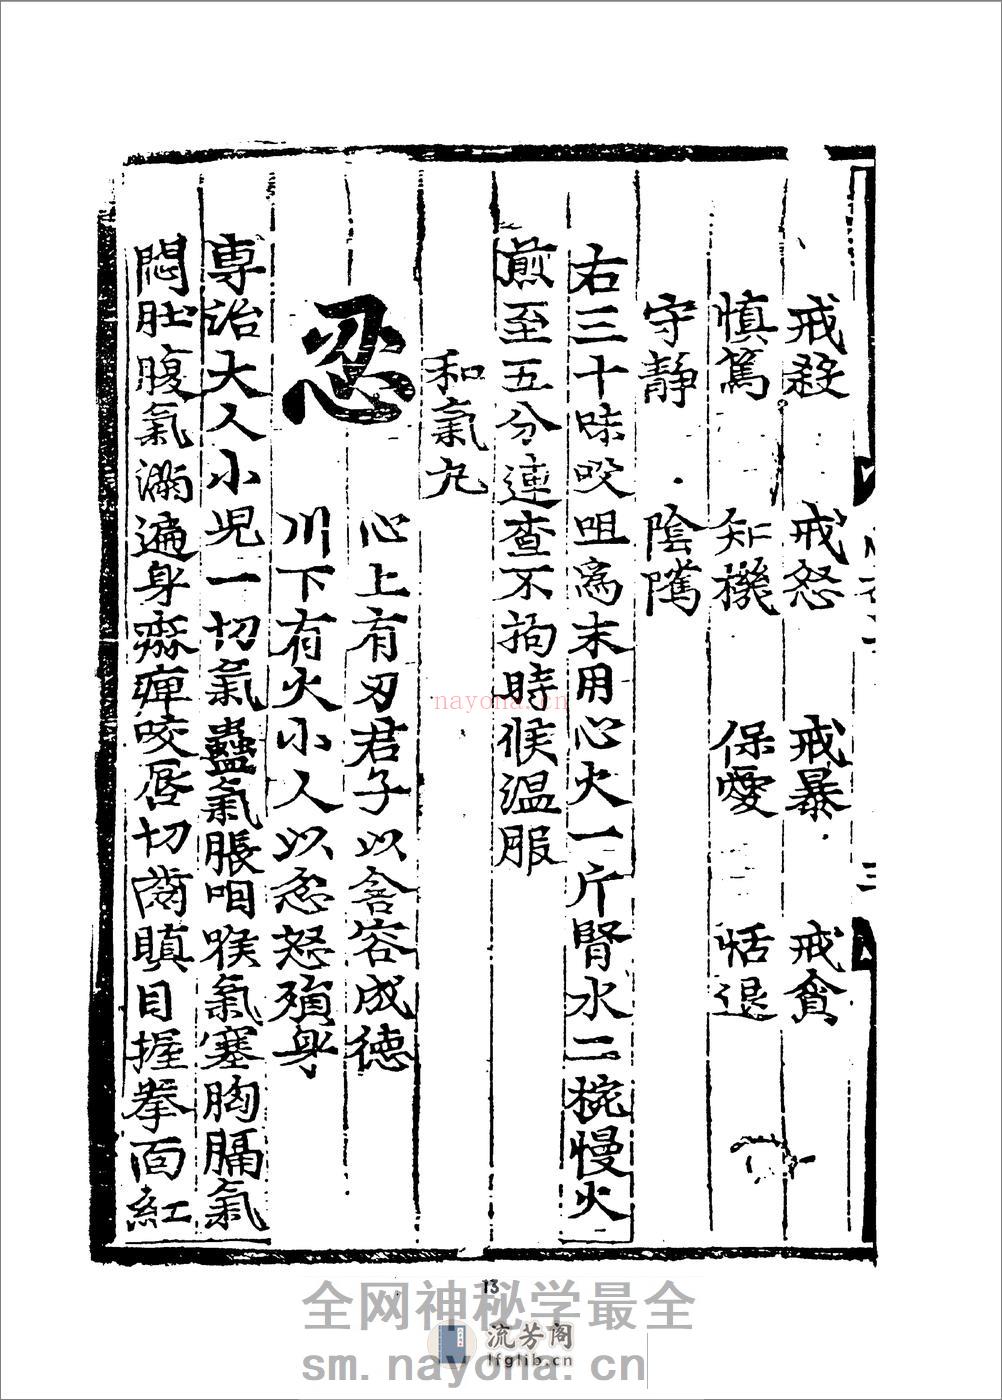 戒殺　戒怒　戒暴　戒貪
慎篤　知機　保愛　恬退
守靜　陰隲
右三十味㕮咀爲末用心火一斤腎水二椀慢火
煎至五分連查不拘時候温服
和氣丸
忍
心上有刃君子以含容成德
川下有火小人以忿怒殞身
専治大人小児一切氣蠱氣脹咽喉氣塞胸膈氣
悶肚腹氣滿遍身痲痺咬唇切齒瞋目握拳面紅
nayona.cn
13
全网神秘学最全
流芳阁
lfglib.cn
sm.nayona.cn